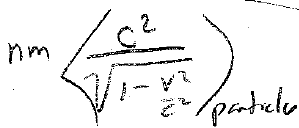 nm ⟨ c² / √(1 - v²/c²) ⟩ particles